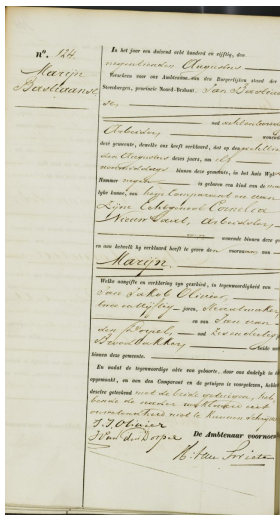 n°. 124.
Marijn
Bastiaanse
In het jaar een duizend acht honderd en vijftig, den
negentienden Augustus
Verscheen voor ons Ambtenaar van den Burgerlijken stand der
Steenbergen, provincie Noord-Braband. Jan Bastiaan
se,
oud achtentwintig
Arbeider, wonende
deze gemeente, dewelke ons heeft verklaard, dat op den achttien
den Augustus dezes jaars, om elf
uur, binnen deze gemeente, in het huis Wijk
Nommer negen is geboren een kind van de man
lijke kunne, van hem Comparant en van
Zijne Echtgenoot Cornelia
Arbeidster
wonende binnen deze ge
en aan hetwelk hij verklaard heeft te geven den voornaam van
Marijn.
Welke aangifte en verklaring zyn geschied, in tegenwoordigheid van
Jan Jakob Olivier,
jaren,
en van Jan van
den Dorpel, oud
beide wo
binnen deze gemeente.
En nadat de tegenwoordige akte van geboorte, door ons dadelijk is
opgemaakt, en aan den Comparant en de getuigen is voorgelezen, hebben
dezelve geteekend met de beide getuigen, heb
bende de vader verklaard uit
onwetendheid niet te kunnen schrijven
J. J. Olivier
J. van den Dorpel
De Ambtenaar voornoemd
H. van